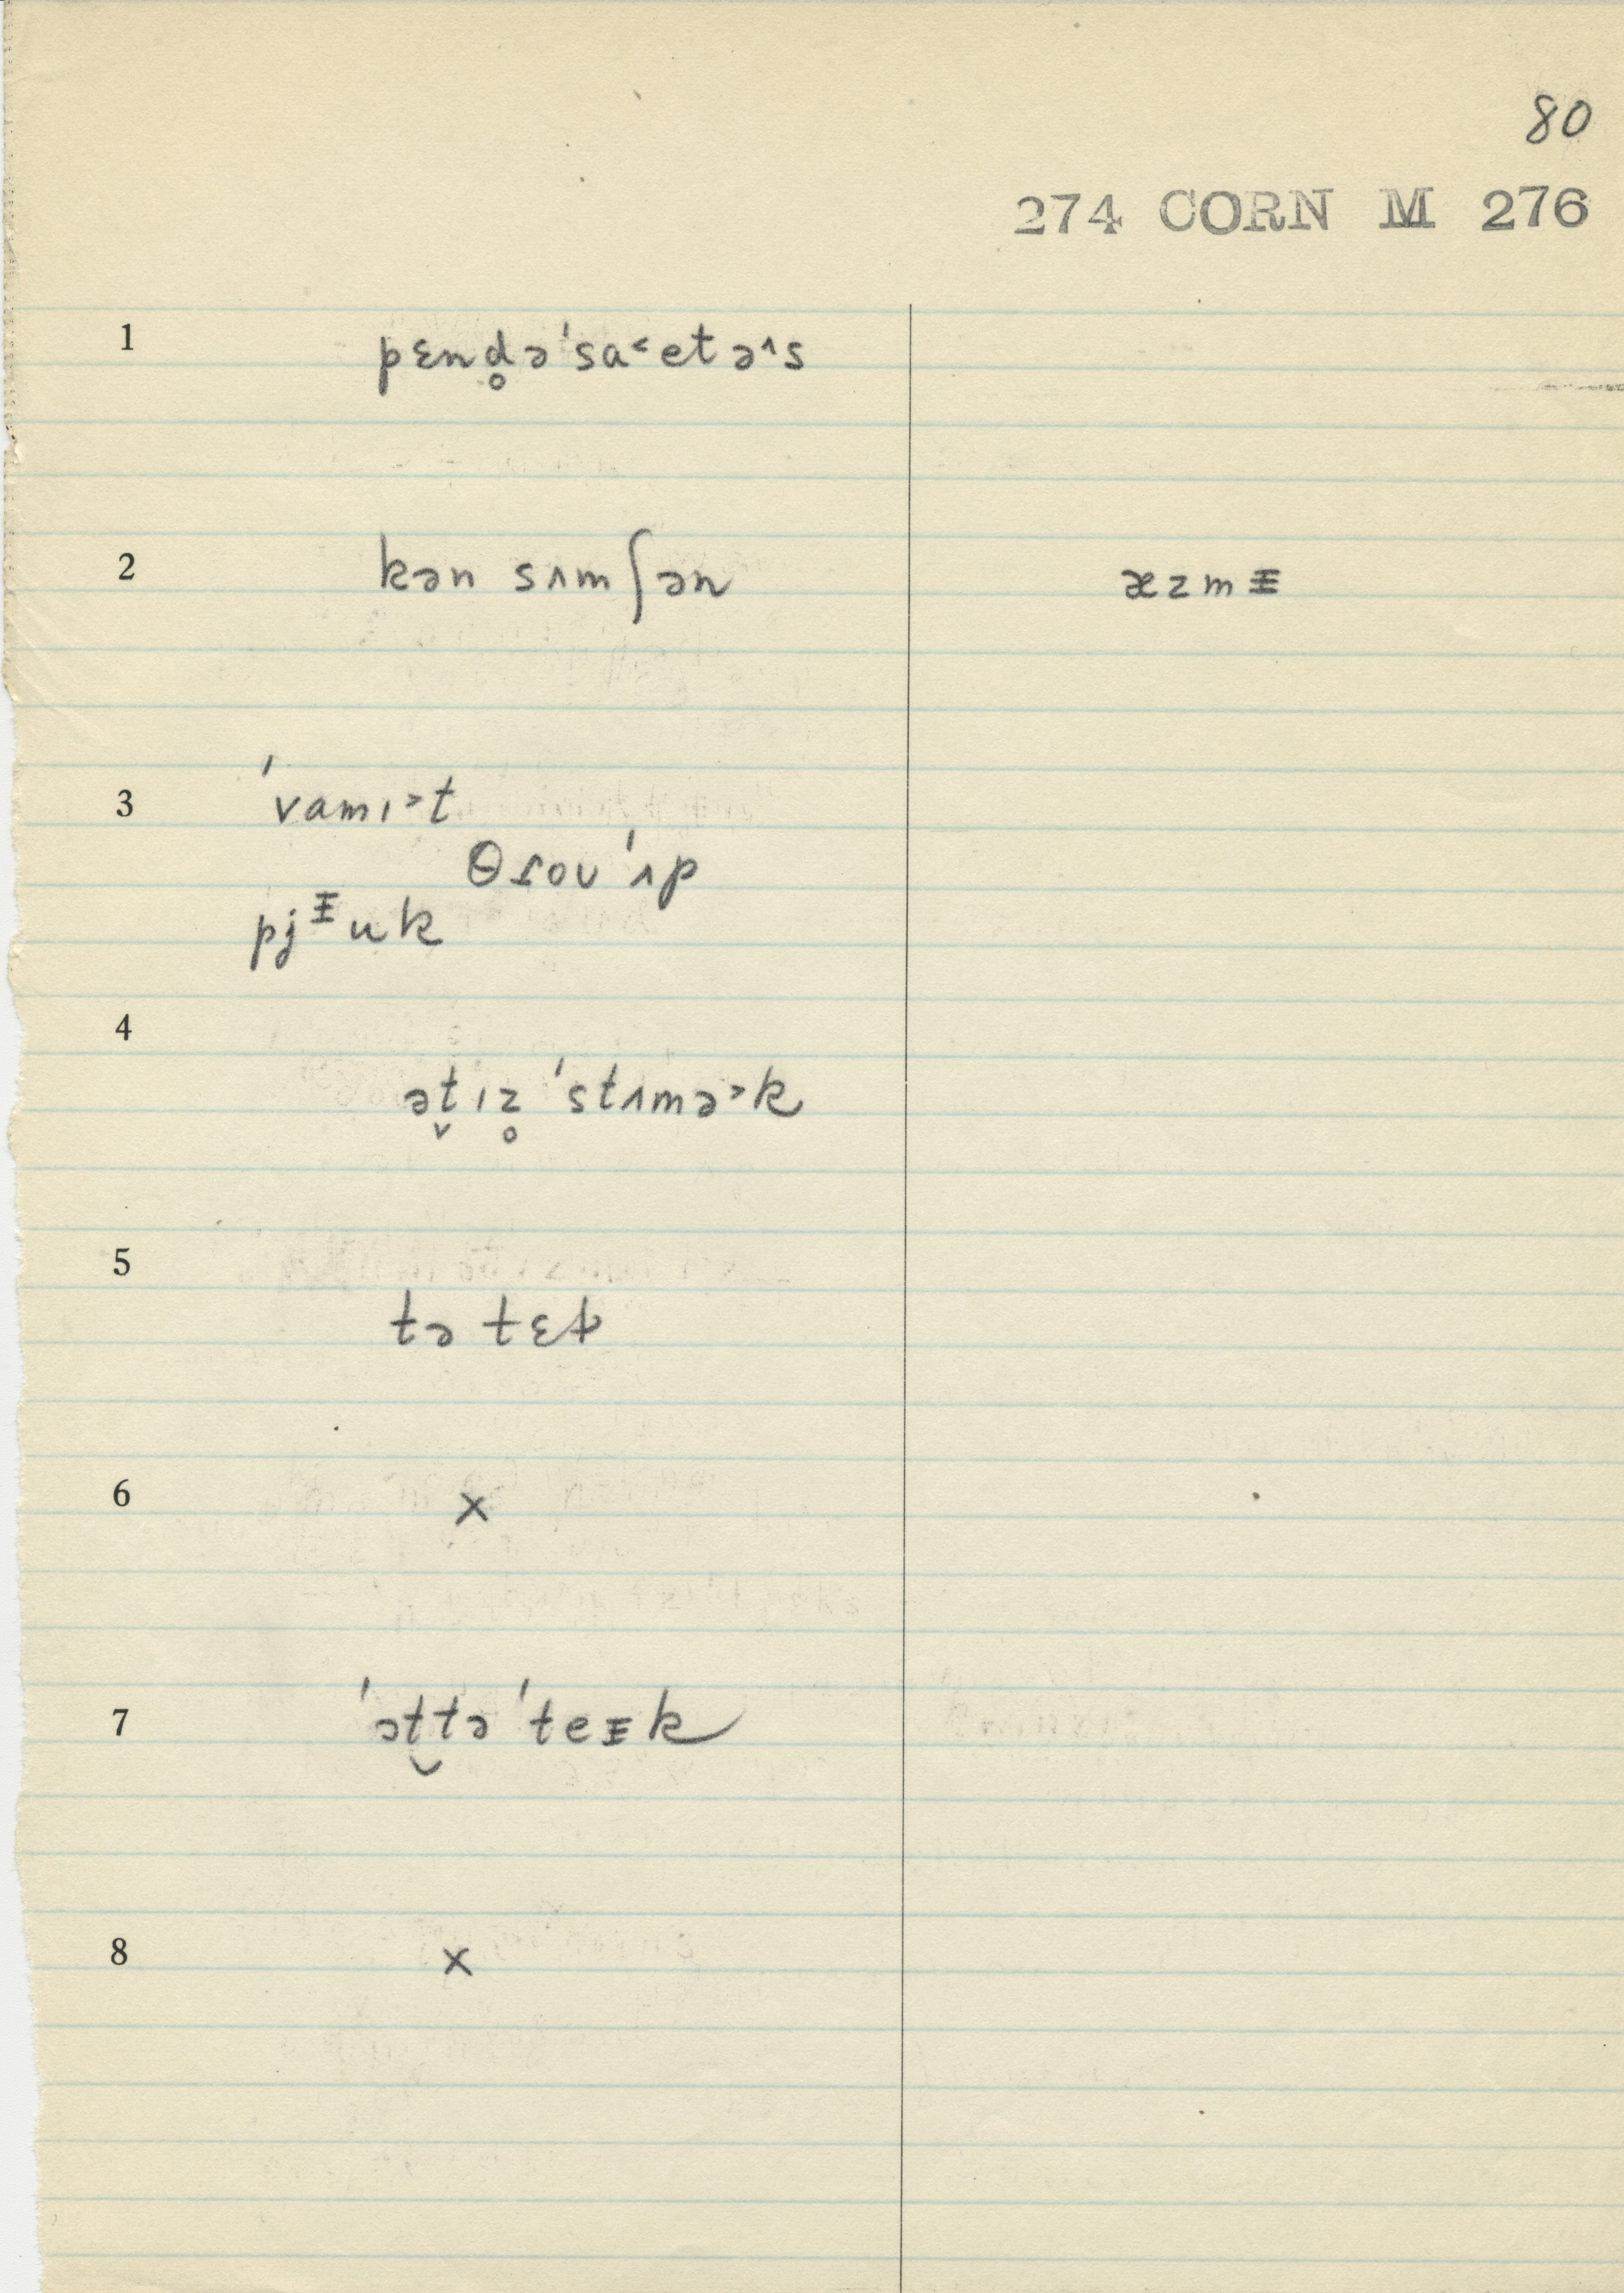 80
274 CORN M 276
1 pɛnd̥ə ˈsa˂etə˄s
2 kən sʌmʃən æzmᵻ
3 ˈvamɪ˃t
θɾoʊ ˈʌp
pjᵻuk
4 ət̬ɪz̥ ˈstʌmə˃k
5 tə tɛk
6 x
7 ˈət̬tə ˈteᵻk
8 x